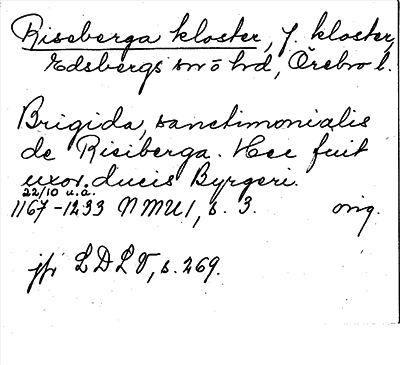 Riseberga kloster, f. kloster,
Edsbergs sn o hd, Örebro l.
Brigida, sanctimonialis
de Risiberga. Hec fuit
uxor ducis Byrgeri.
22/10 u.å.
1167-1233 NMU 1, s. 3. orig.
jfr LDLV, s. 269.